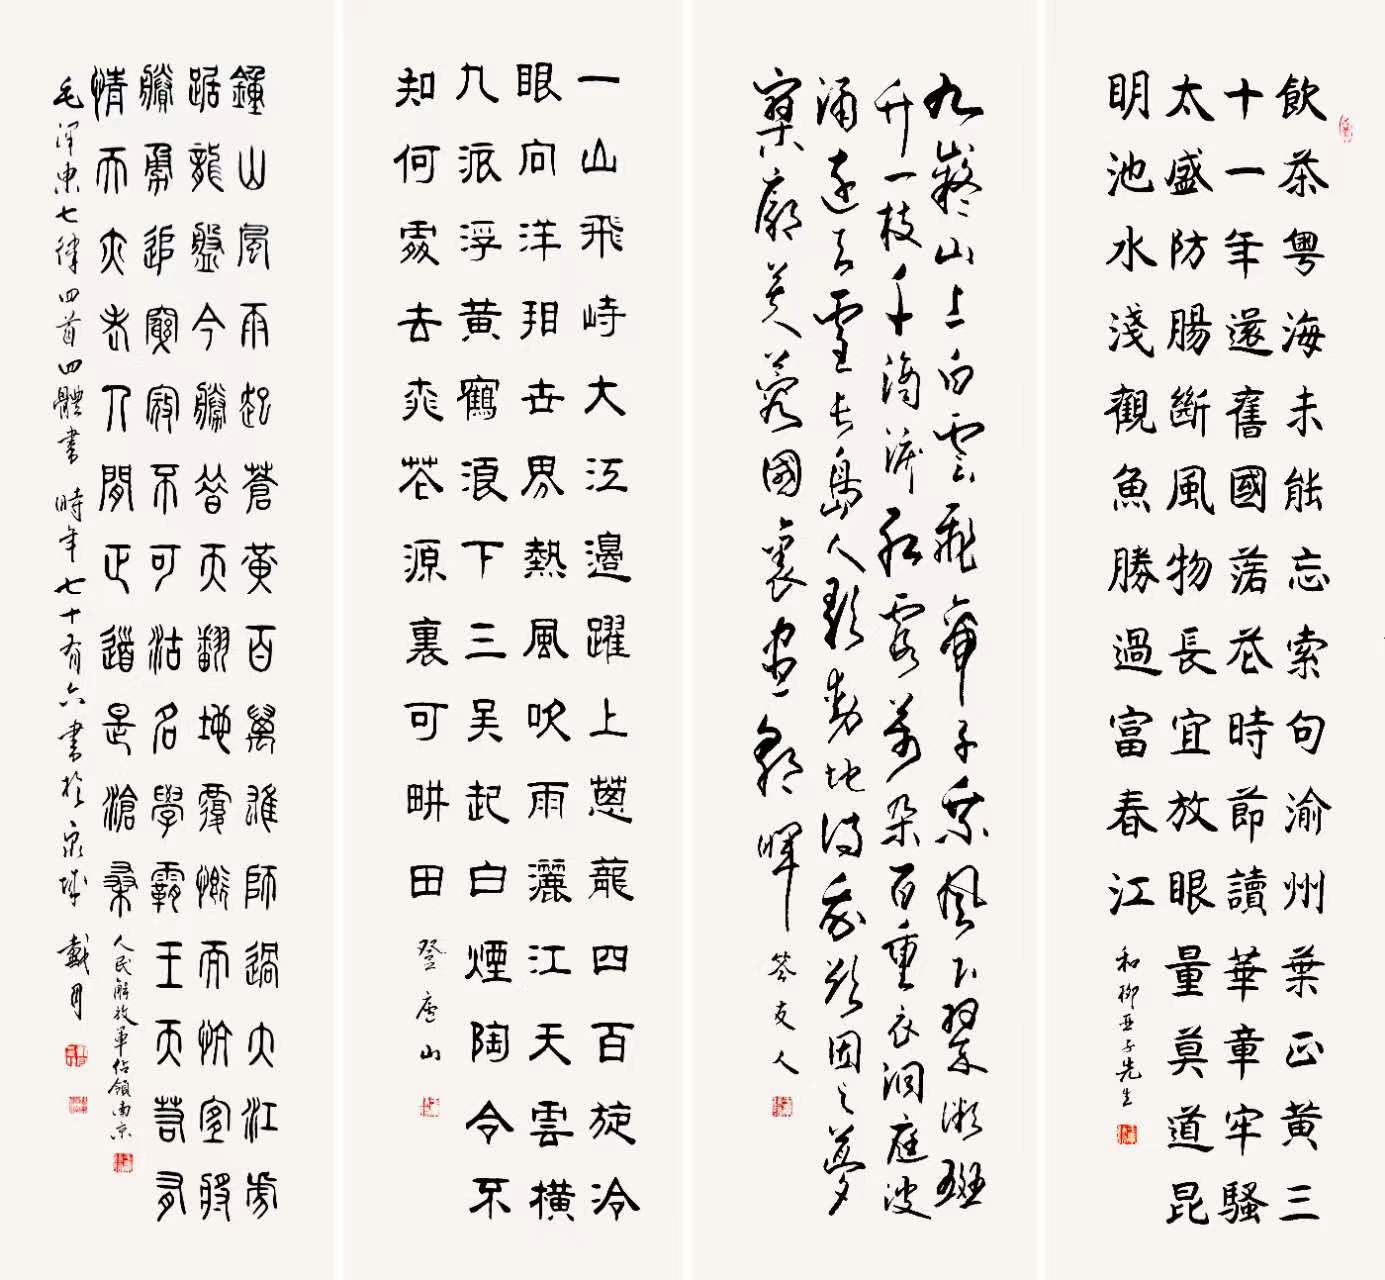 飲茶粵海未能忘索句渝州葉正黃三
十一年還舊國落花時節讀華章牢騷
太盛防腸斷風物長宜放眼量莫道昆
明池水淺觀魚勝過富春江
和柳亞子先生
九嶷山上白雲飛帝子乘風下翠微斑
竹一枝千滴淚紅霞萬朵百重衣洞庭波
涌連天雪長島人歌動地詩我欲因之夢
寥廓芙蓉國裏盡朝暉
答友人
一山飛峙大江邊躍上蔥蘢四百旋冷
眼向洋看世界熱風吹雨灑江天雲橫
九派浮黃鶴浪下三吳起白煙陶令不
知何處去桃花源裏可畊田
登廬山
鐘山風雨起蒼黃百萬雄師過大江虎
踞龍盤今勝昔天翻地覆慨而慷宜將
勝勇追窮寇不可沽名學霸王天若有
情天亦老人間正道是滄桑
人民解放軍佔領南京
毛澤東七律四首四體書 時年七十有六書於泉城 戴